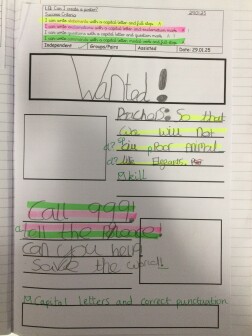 L.O. Can I create a poster?
Success Criteria:
I can write statements with a capital letter and full stop
I can write exclamations with a capital letter and exclamation mark
I can write questions with a capital letter and question mark
I can write commands with a capital letter and full stop
Independent / Groups/Pairs Assisted Date: 29.01.25
Wanted!
Poachers: So that
we will not
poor animal
like
kill
Call 999!
on the phone!
can you help
save the world!
Capital letters and correct punctuation